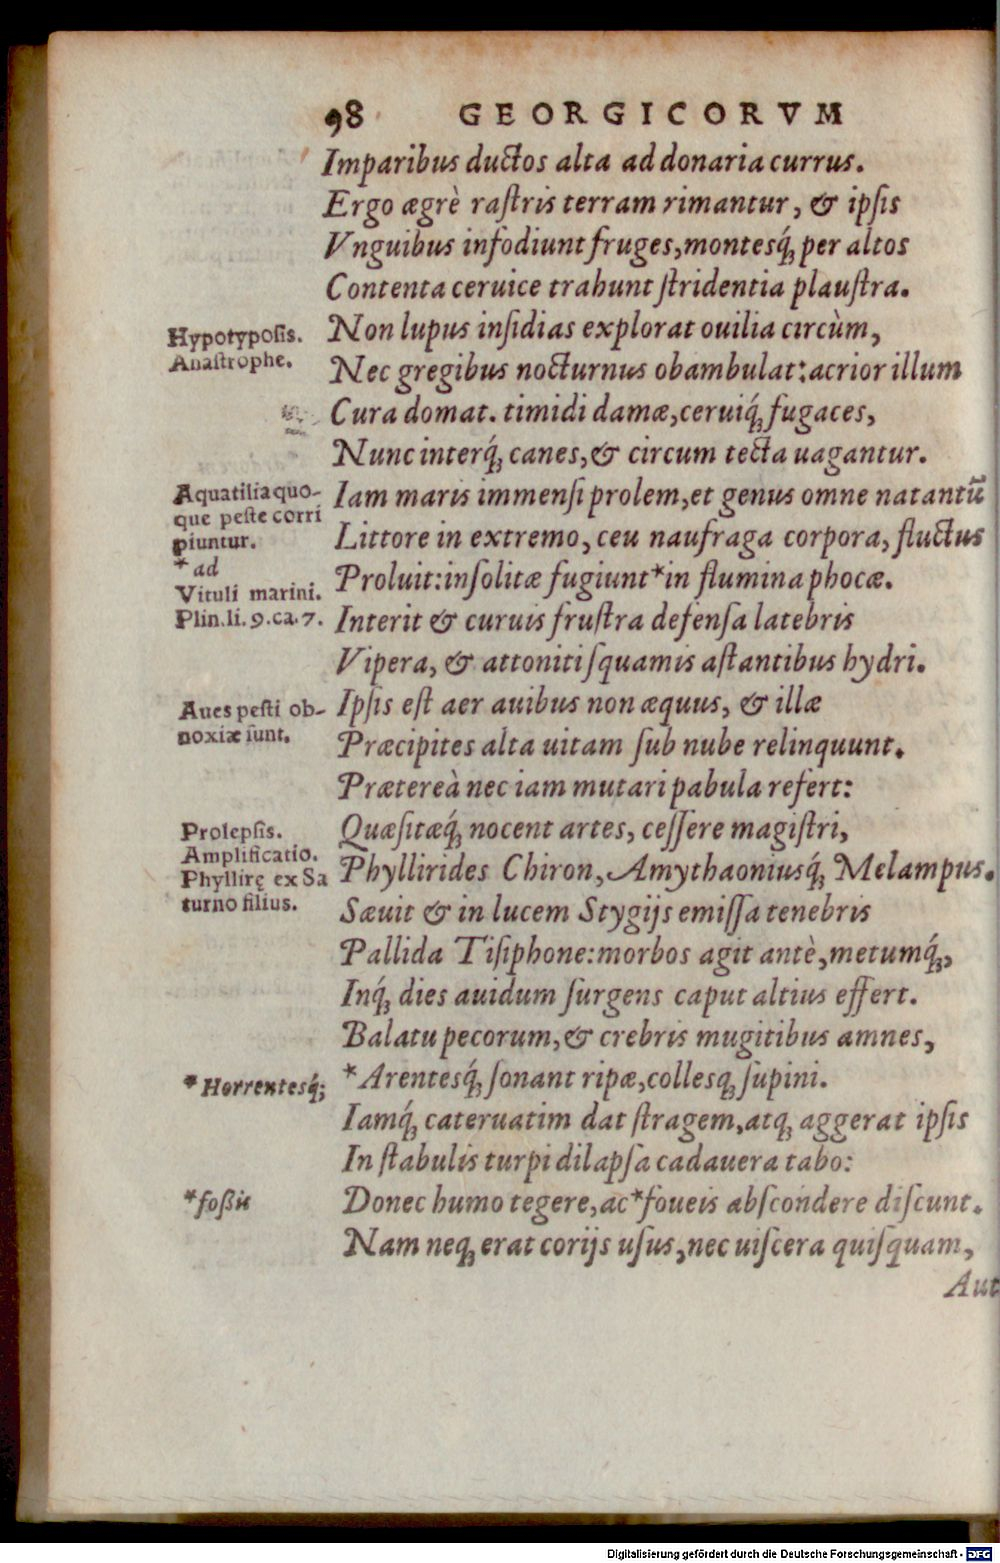 98 GEORGICORVM
Imparibus ductos alta ad donaria currus.
Ergo ægrè raſtris terram rimantur, & ipſis
Vnguibus infodiunt fruges, montesq́; per altos
Contenta ceruice trahunt ſtridentia plauſtra.
Hypotypoſis.
Anaſtrophe.
Non lupus inſidias explorat ouilia circùm,
Nec gregibus nocturnus obambulat: acrior illum
Cura domat. timidi damæ, ceruiq́; fugaces,
Nunc interq́; canes, & circum tecta uagantur.
Aquatilia quo-
que peſte corri
piuntur.
*ad
Vituli marini.
Plin.li.9.ca.7.
Iam maris immenſi prolem, et genus omne natantũ
Littore in extremo, ceu naufraga corpora, fluctus
Proluit: inſolitæ fugiunt *in flumina phocæ.
Interit & curuis fruſtra defenſa latebris
Vipera, & attoniti ſquamis aſtantibus hydri.
Aues peſti ob-
noxiæ ſunt.
Ipſis eſt aer auibus non æquus, & illæ
Præcipites alta uitam ſub nube relinquunt.
Prætereà nec iam mutari pabula refert:
Prolepſis.
Amplificatio.
Phyllirę ex Sa
turno filius.
Quæſitæq́; nocent artes, ceſſere magiſtri,
Phyllirides Chiron, Amythaoniusq́; Melampus.
Sæuit & in lucem Stygijs emiſſa tenebris
Pallida Tiſiphone: morbos agit antè, metumq́;,
Inq́; dies auidum ſurgens caput altius effert.
Balatu pecorum, & crebris mugitibus amnes,
*Horrentesq́;
*Arentesq́; ſonant ripæ, collesq; ſupini.
Iamq́; cateruatim dat ſtragem, atq; aggerat ipſis
In ſtabulis turpi dilapſa cadauera tabo:
*foßis
Donec humo tegere, ac *foueis abſcondere diſcunt.
Nam neq; erat corijs uſus, nec uiſcera quiſquam,
Aut
Digitalisierung gefördert durch die Deutsche Forschungsgemeinschaft - DFG